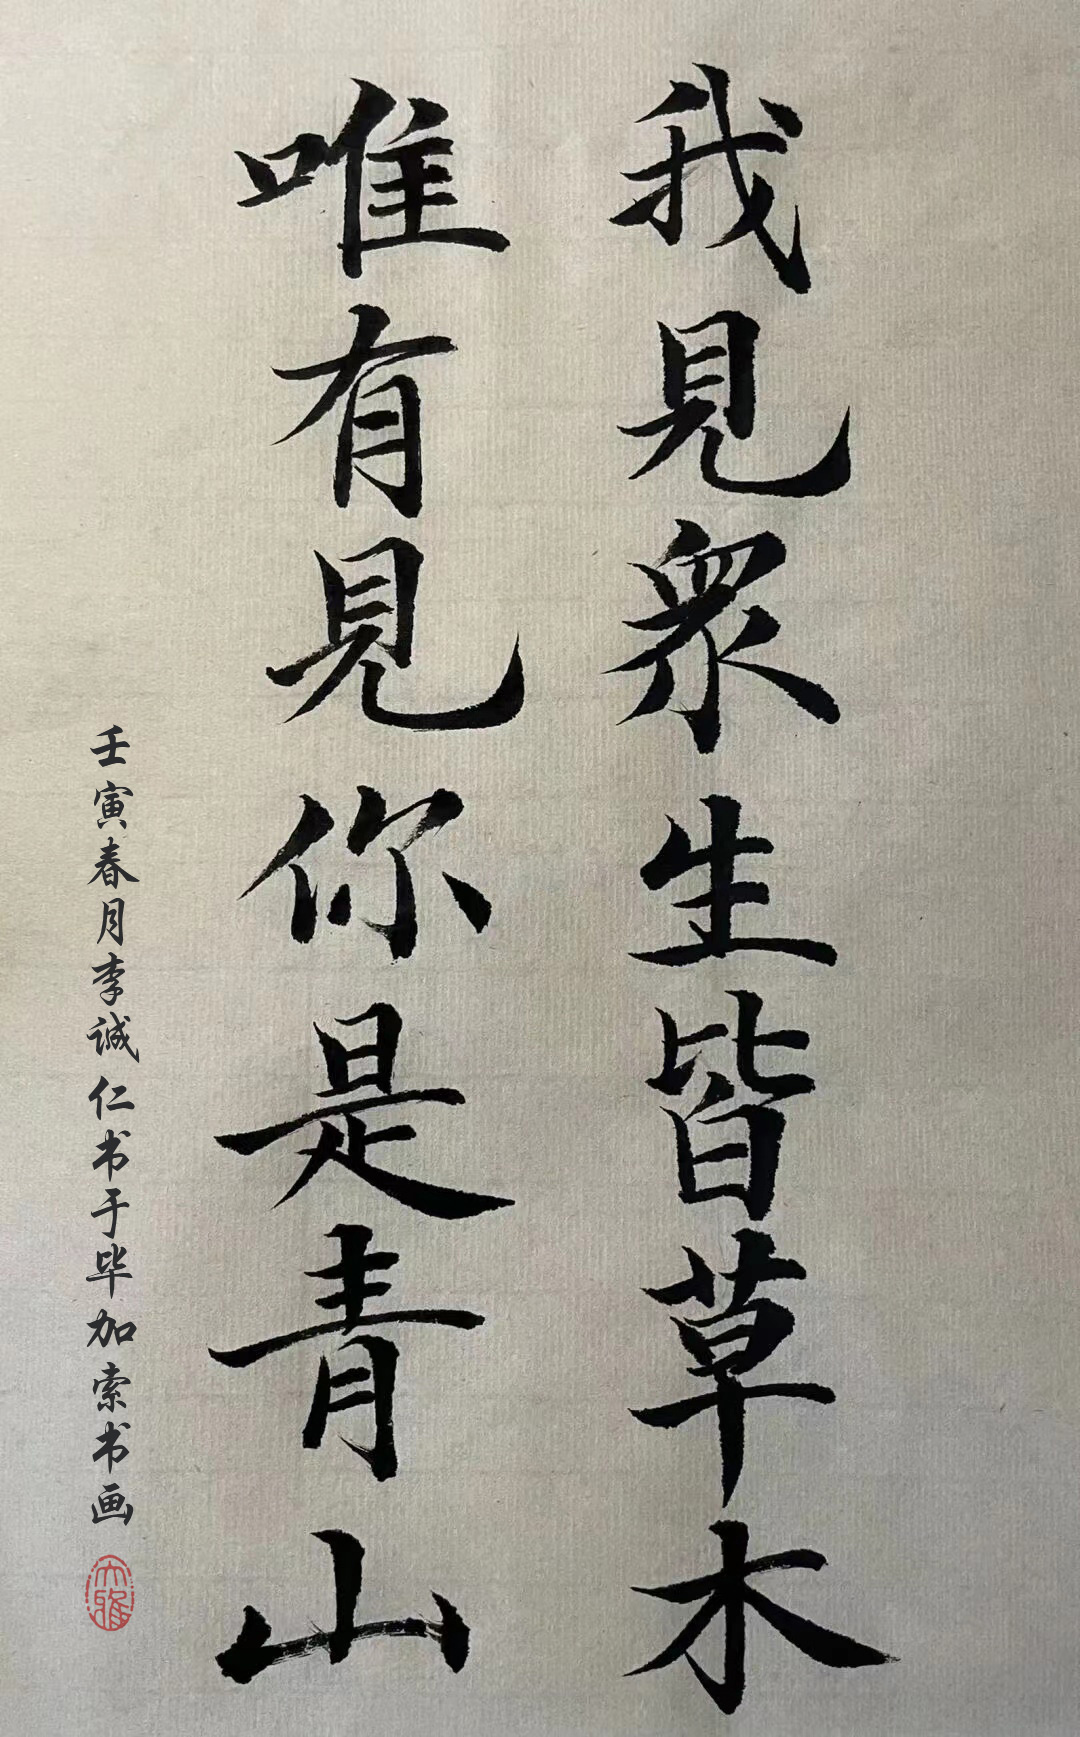 我見衆生皆草木
唯有見你是青山
壬寅春月李诚仁书于毕加索书画
大雅